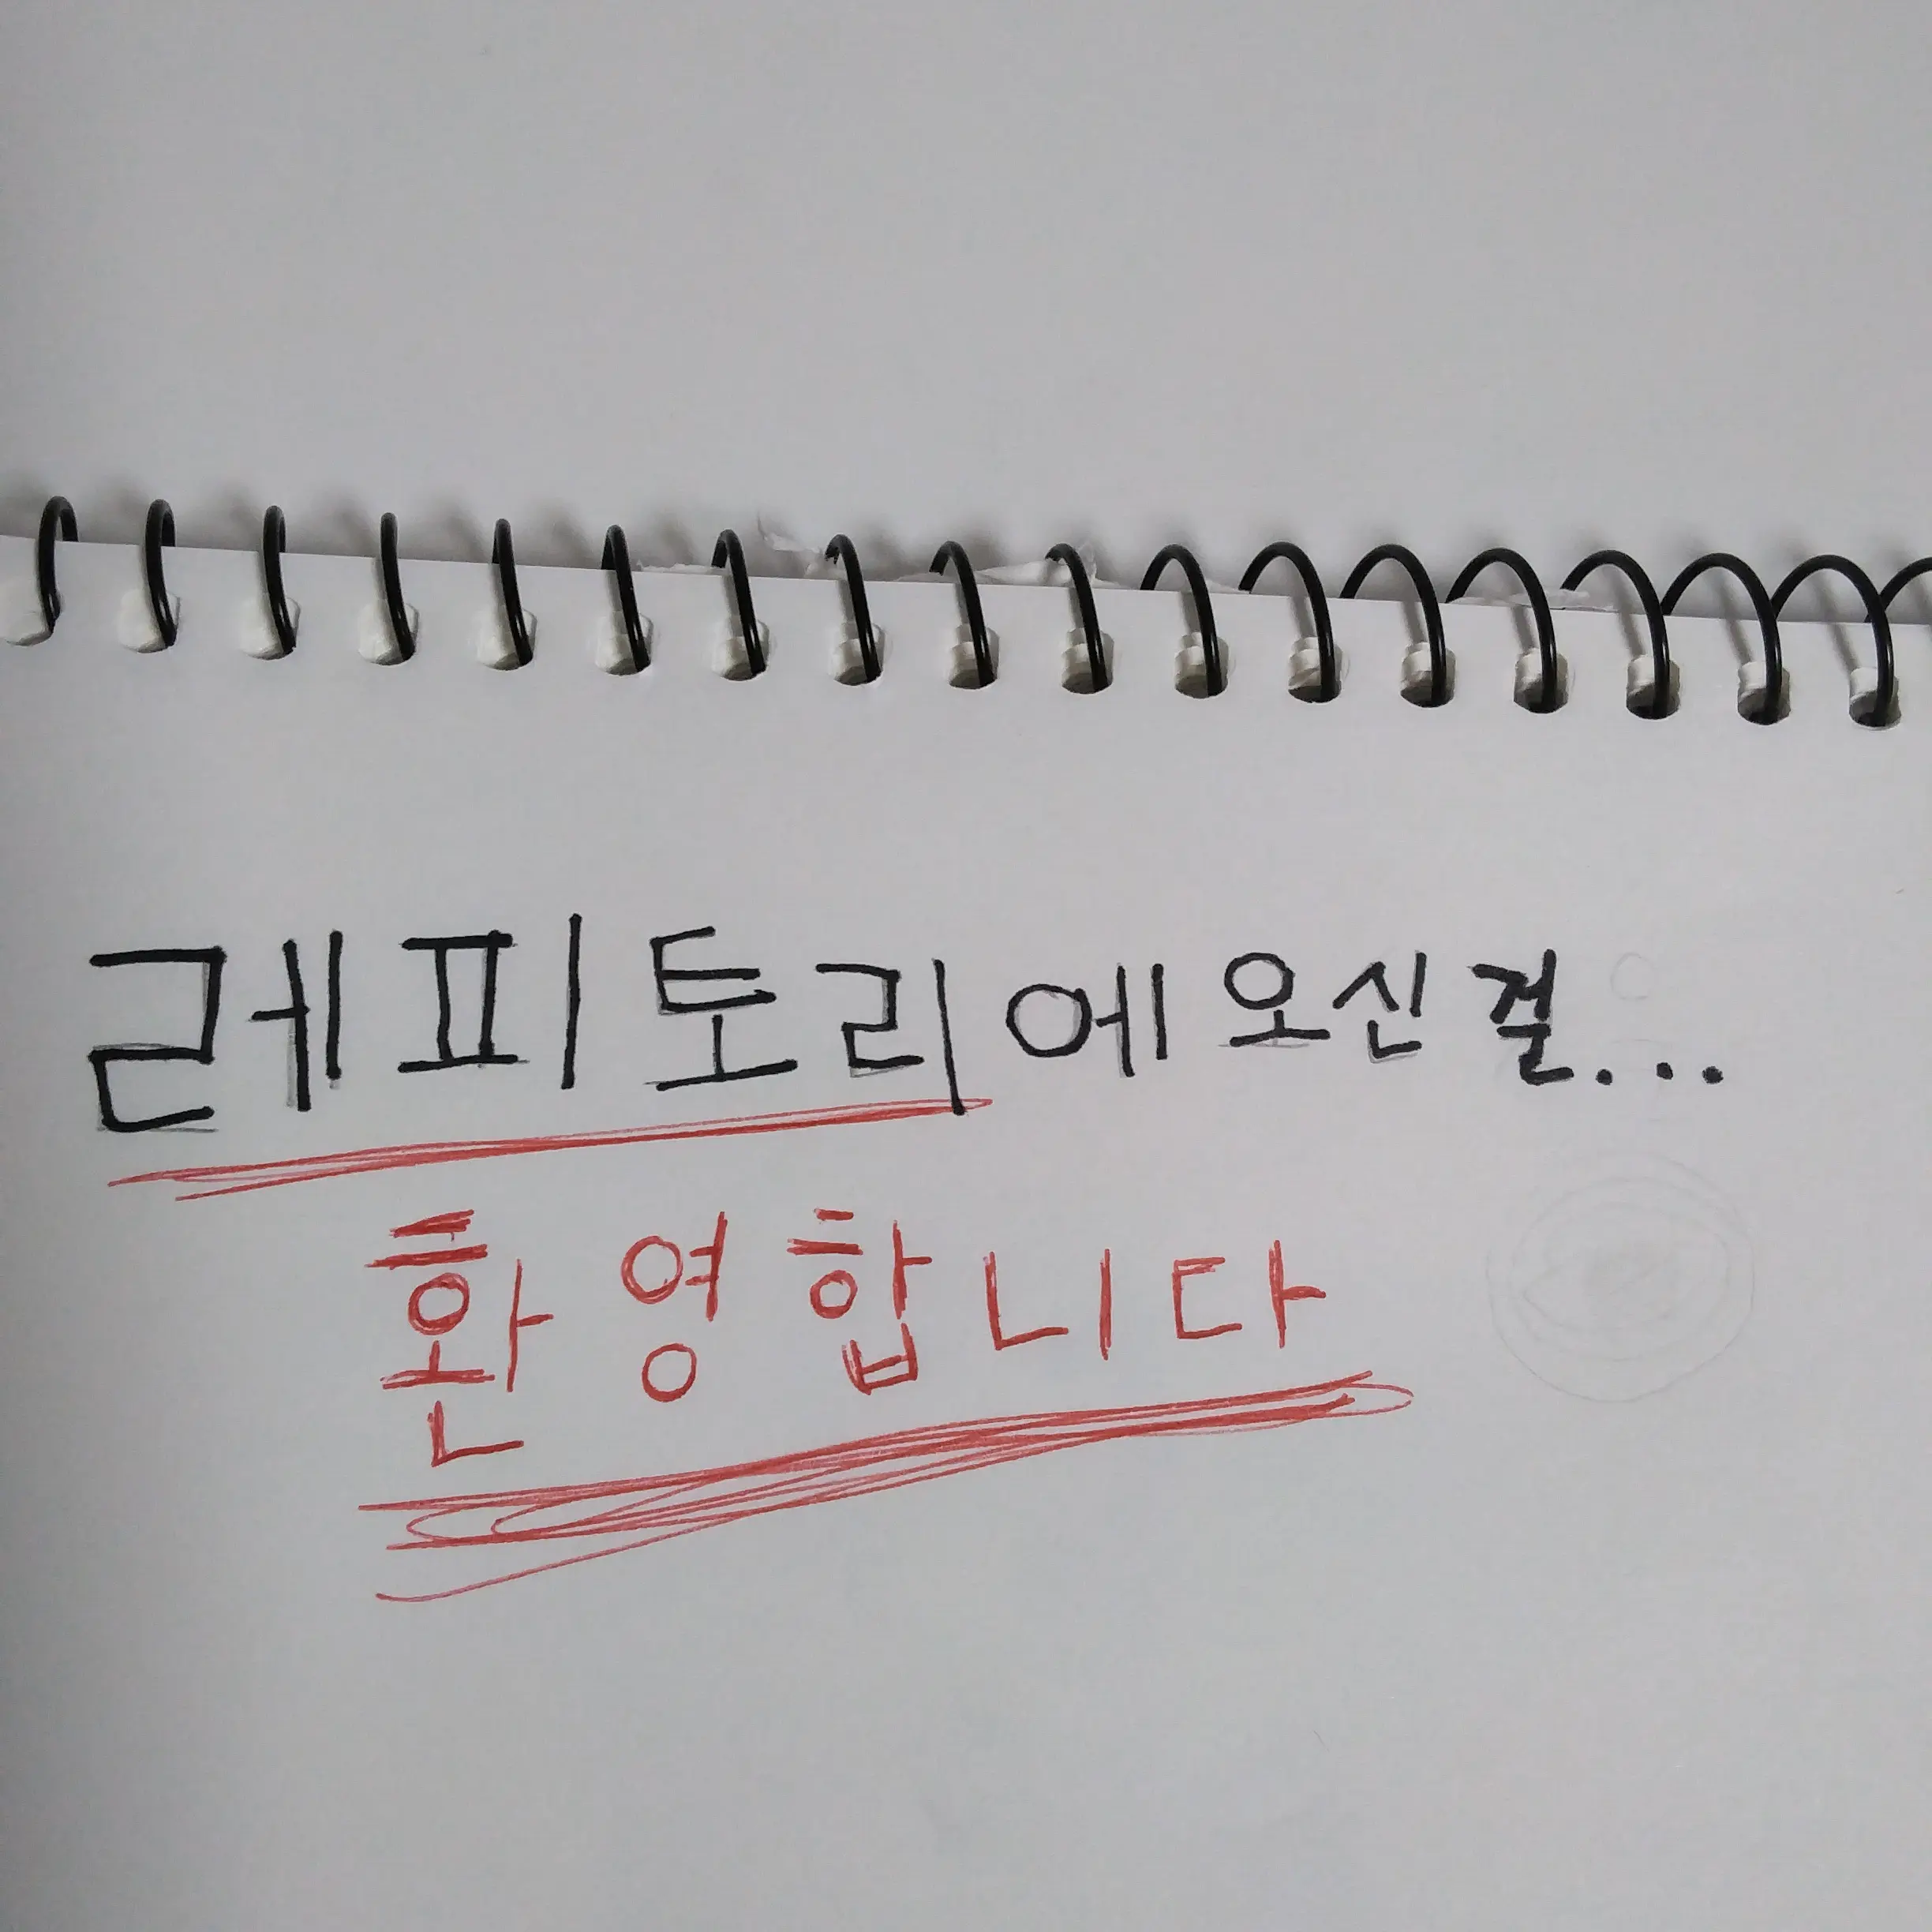 레피토리에 오신 걸...
환영합니다